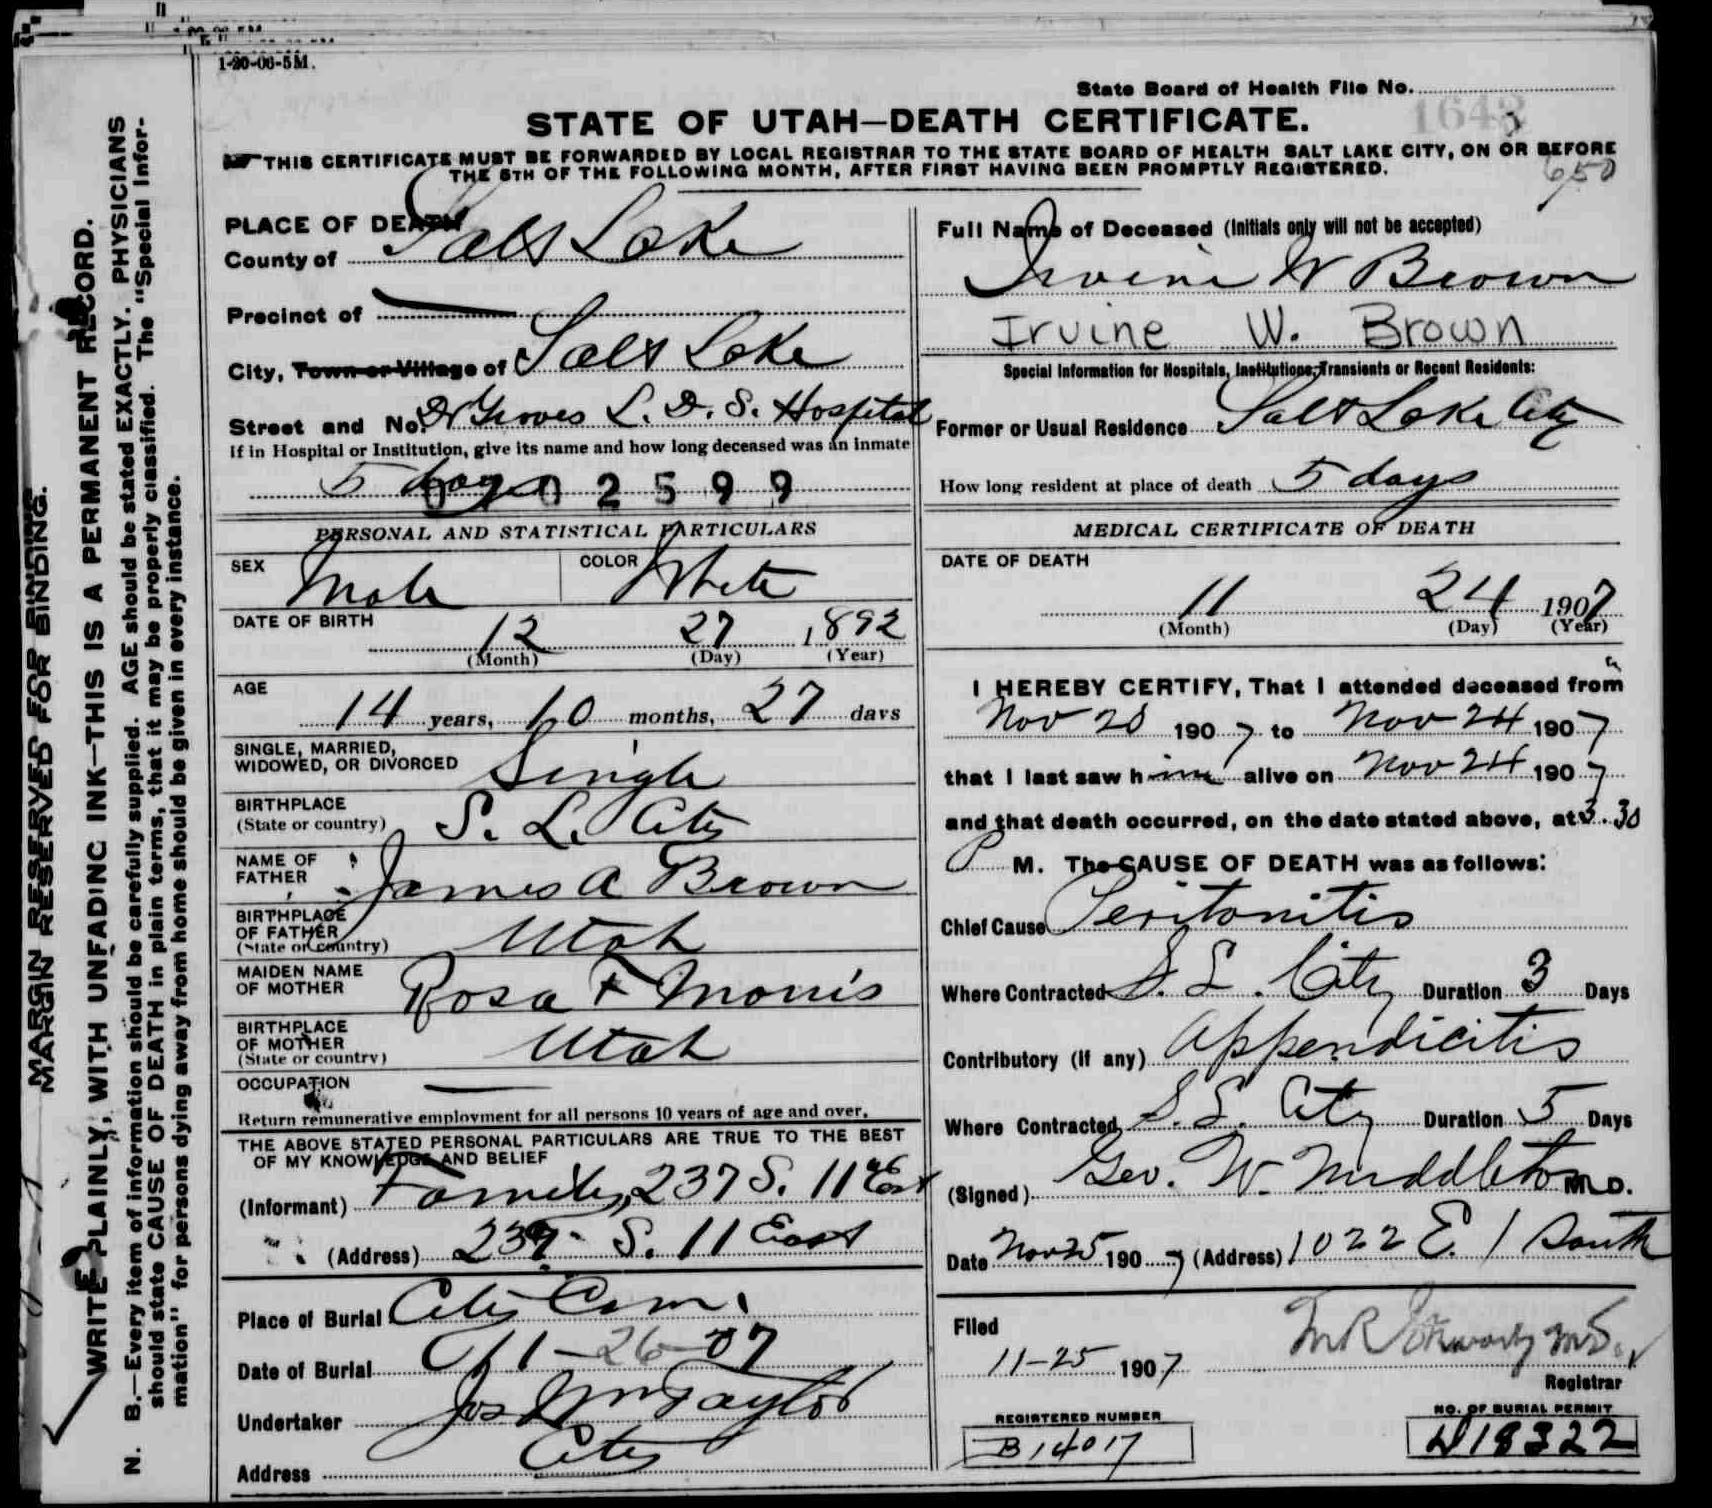 1-20-06-5M.
State Board of Health File No.
STATE OF UTAH—DEATH CERTIFICATE.
THIS CERTIFICATE MUST BE FORWARDED BY LOCAL REGISTRAR TO THE STATE BOARD OF HEALTH SALT LAKE CITY, ON OR BEFORE
THE 5TH OF THE FOLLOWING MONTH, AFTER FIRST HAVING BEEN PROMPTLY REGISTERED.
650
MARGIN RESERVED FOR BINDING.
WRITE PLAINLY, WITH UNFADING INK—THIS IS A PERMANENT RECORD.
N. B.—Every item of information should be carefully supplied. AGE should be stated EXACTLY. PHYSICIANS
should state CAUSE OF DEATH in plain terms, that it may be properly classified. The "Special Infor-
mation" for persons dying away from home should be given in every instance.
PLACE OF DEATH
County of Salt Lake
Precinct of
City, Town or Village of Salt Lake
Street and No. Dr Groves L. D. S. Hospital
If in Hospital or Institution, give its name and how long deceased was an inmate
5 days 0202599
PERSONAL AND STATISTICAL PARTICULARS
SEX Male COLOR White
DATE OF BIRTH 12 27 1892
(Month) (Day) (Year)
AGE 14 years, 10 months, 27 days
SINGLE, MARRIED,
WIDOWED, OR DIVORCED Single
BIRTHPLACE
(State or country) S. L. City
NAME OF
FATHER James A Brown
BIRTHPLACE
OF FATHER
(State or country) Utah
MAIDEN NAME
OF MOTHER Rosa F Morris
BIRTHPLACE
OF MOTHER
(State or country) Utah
OCCUPATION
Return remunerative employment for all persons 10 years of age and over.
THE ABOVE STATED PERSONAL PARTICULARS ARE TRUE TO THE BEST
OF MY KNOWLEDGE AND BELIEF
(Informant) Family, 237 S. 11 East
(Address) 237 S. 11 East
Place of Burial City Cem.
Date of Burial 11-26-07
Undertaker Jos Wm Taylor
Address City
Full Name of Deceased (Initials only will not be accepted)
Irvine W Brown
Irvine W. Brown
Special Information for Hospitals, Institutions, Transients or Recent Residents:
Former or Usual Residence Salt Lake City
How long resident at place of death 5 days
MEDICAL CERTIFICATE OF DEATH
DATE OF DEATH
11 24 1907
(Month) (Day) (Year)
I HEREBY CERTIFY, That I attended deceased from
Nov 20 1907 to Nov 24 1907
that I last saw him alive on Nov 24 1907
and that death occurred, on the date stated above, at 3.30
P M. The CAUSE OF DEATH was as follows:
Chief Cause Peritonitis
Where Contracted S. L. City Duration 3 Days
Contributory (if any) Appendicitis
Where Contracted S. L. City Duration 5 Days
(Signed) Geo. W. Middleton M.D.
Date Nov 25 1907 (Address) 1022 E. 1 South
Filed
11-25 1907
Registrar
REGISTERED NUMBER
B14017
NO. OF BURIAL PERMIT